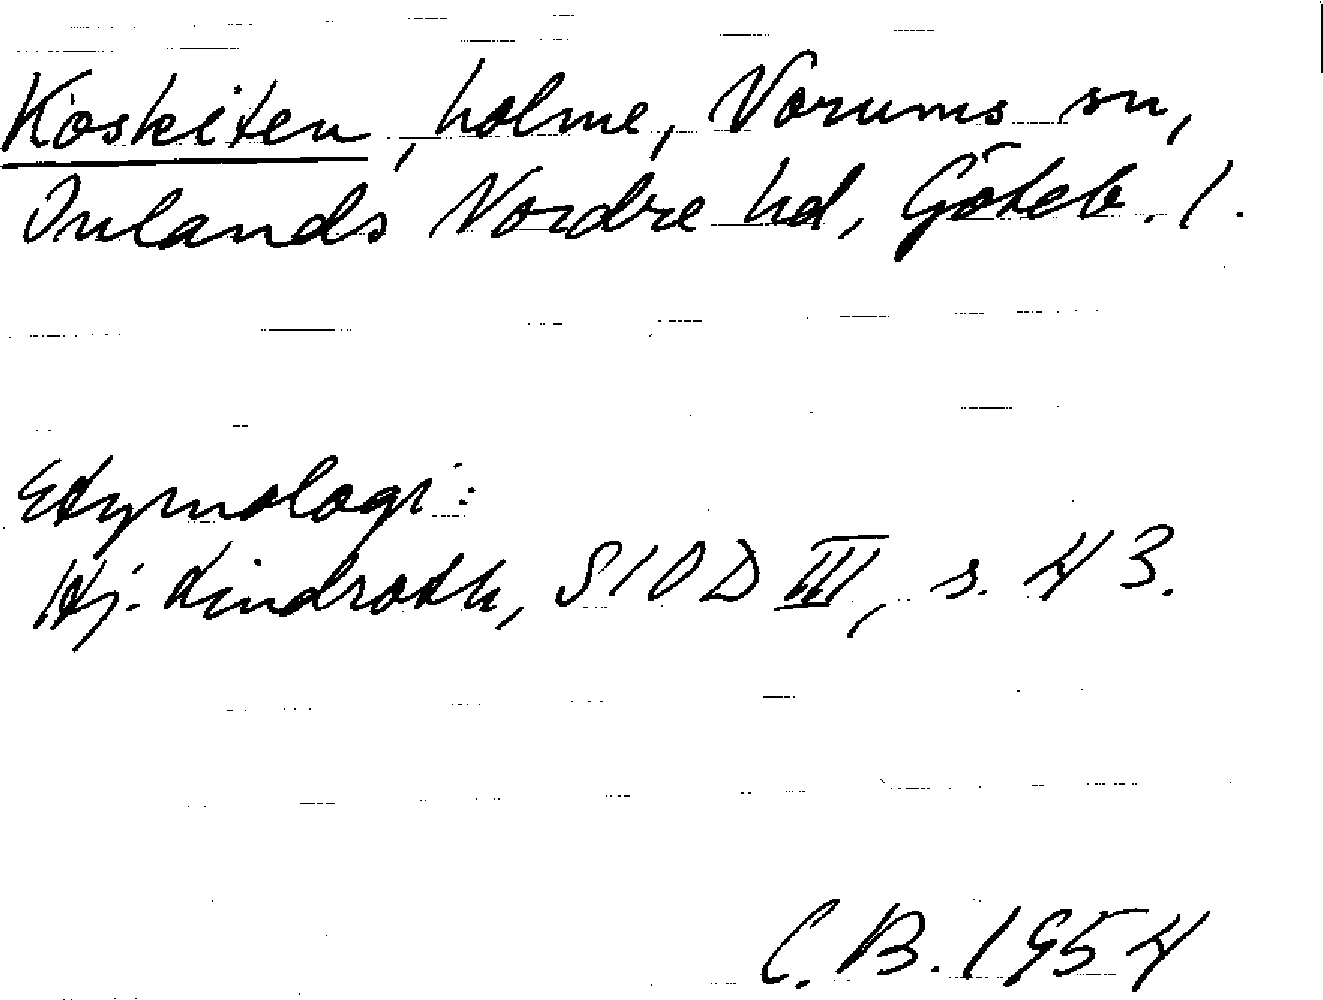 Koskiten, holme, Norums sn,
Inlands Nordre hd, Göteb. l.
Etymologi:
Hj. Lindroth, SIOD III, s. 43.
C. B. 1954